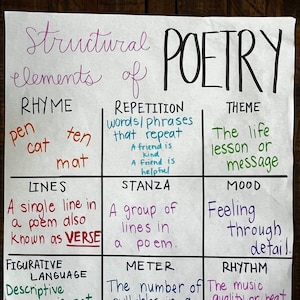 Structural
elements of POETRY
RHYME
pen ten
cat
mat
REPETITION
words/phrases
that repeat
A friend is
kind
A friend is
helpful
THEME
The life
lesson or
message
LINES
A single line in
a poem also
known as VERSE
STANZA
A group of
lines in
a poem.
MOOD
Feeling
through
detail.
FIGURATIVE
LANGUAGE
Descriptive
METER
The number of
RHYTHM
The music
quality or beat